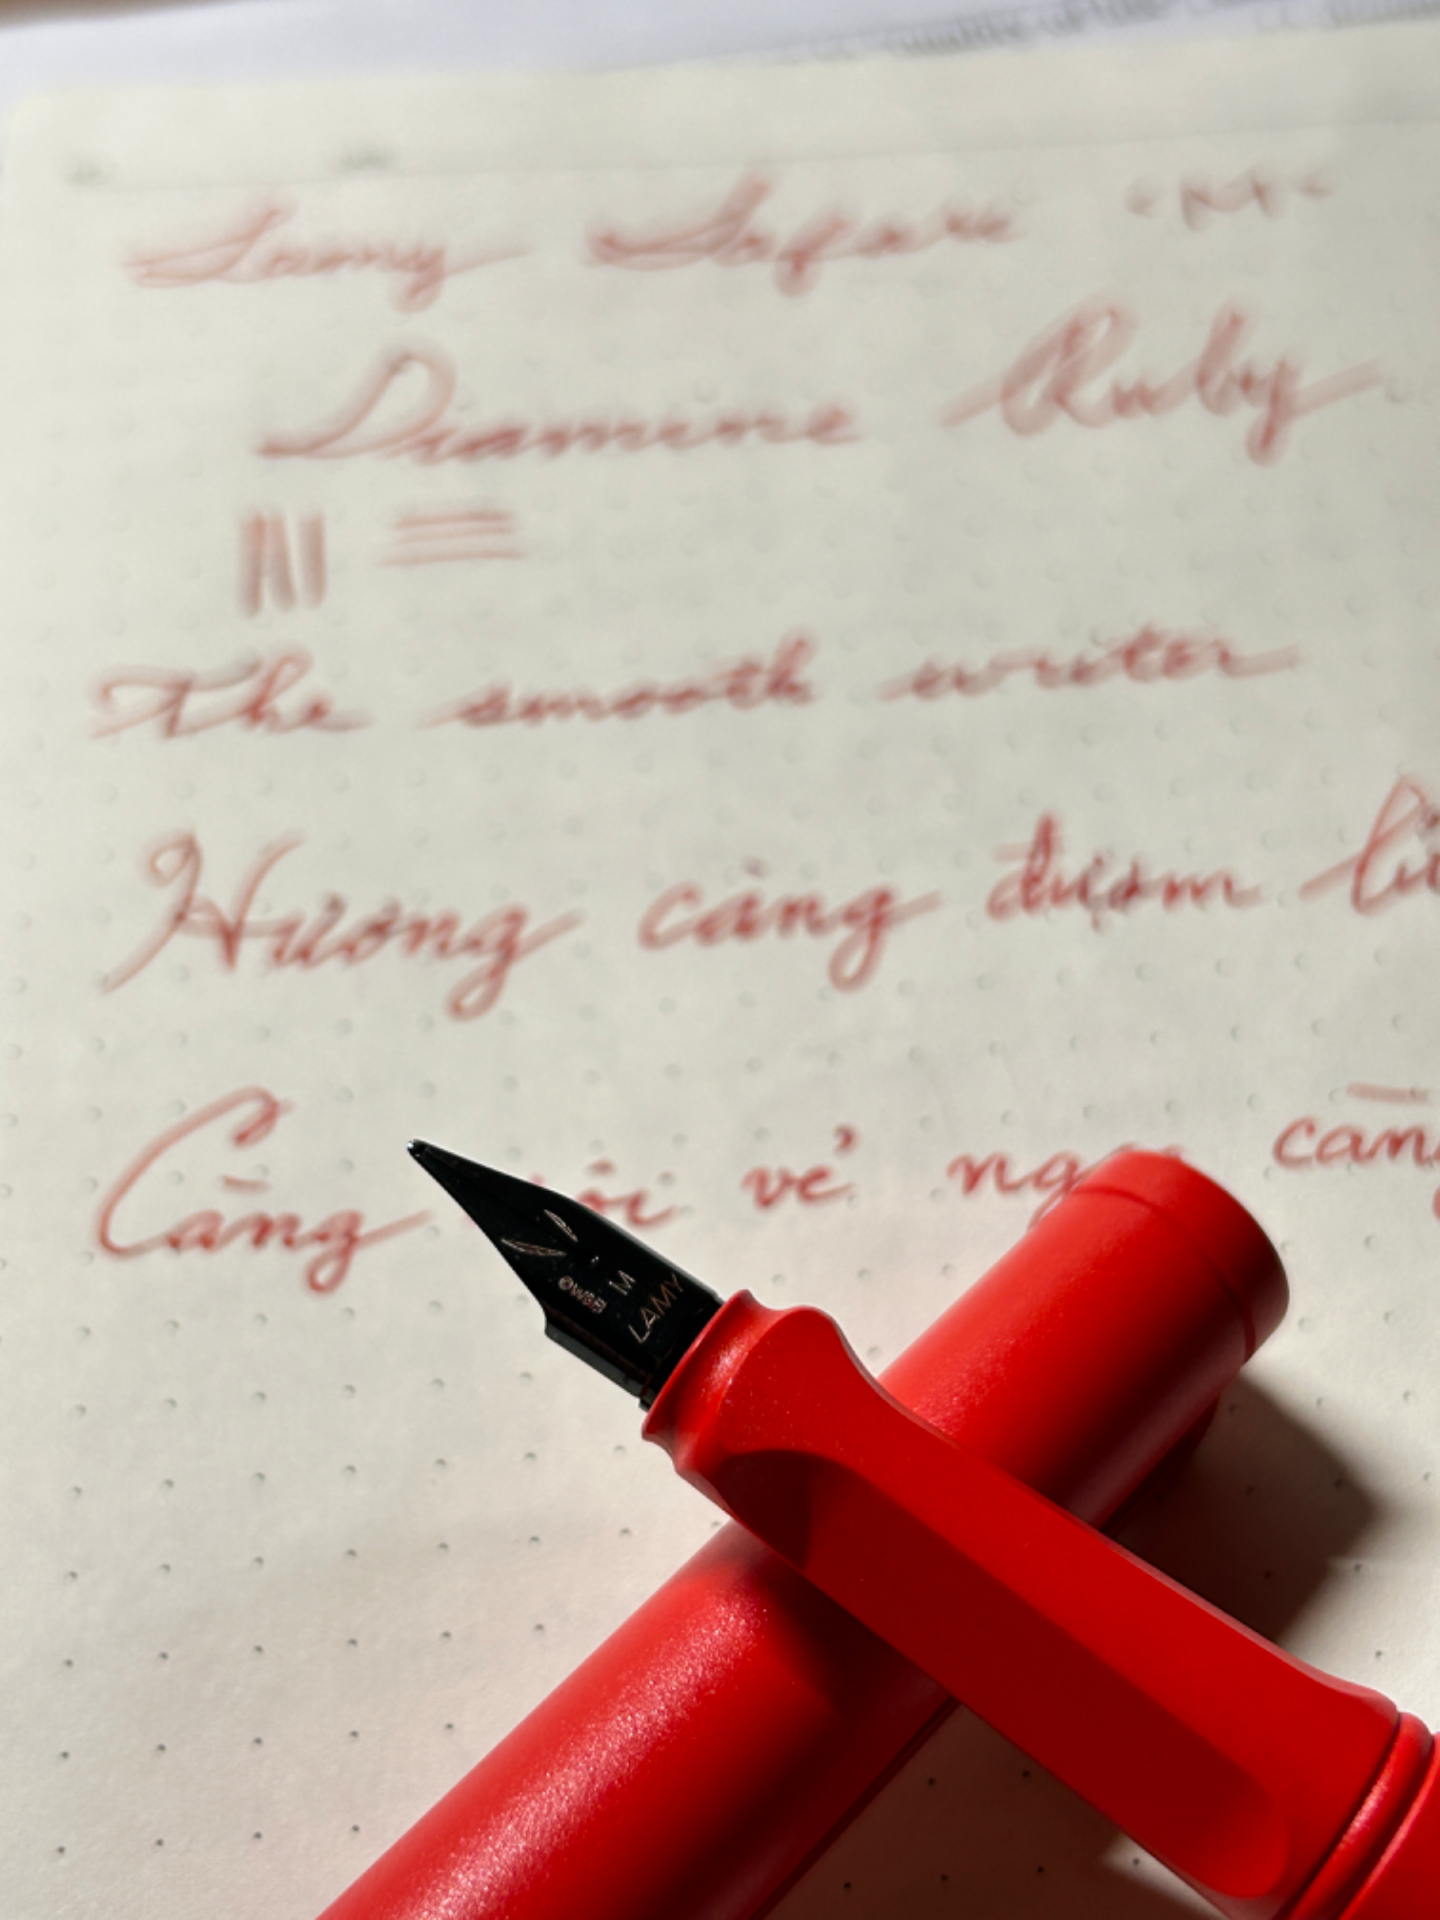 Lamy Safari "M"
Diamine Ruby
The smooth writer
Hương càng đượm
Càng vẻ càng
©WSB M
LAMY